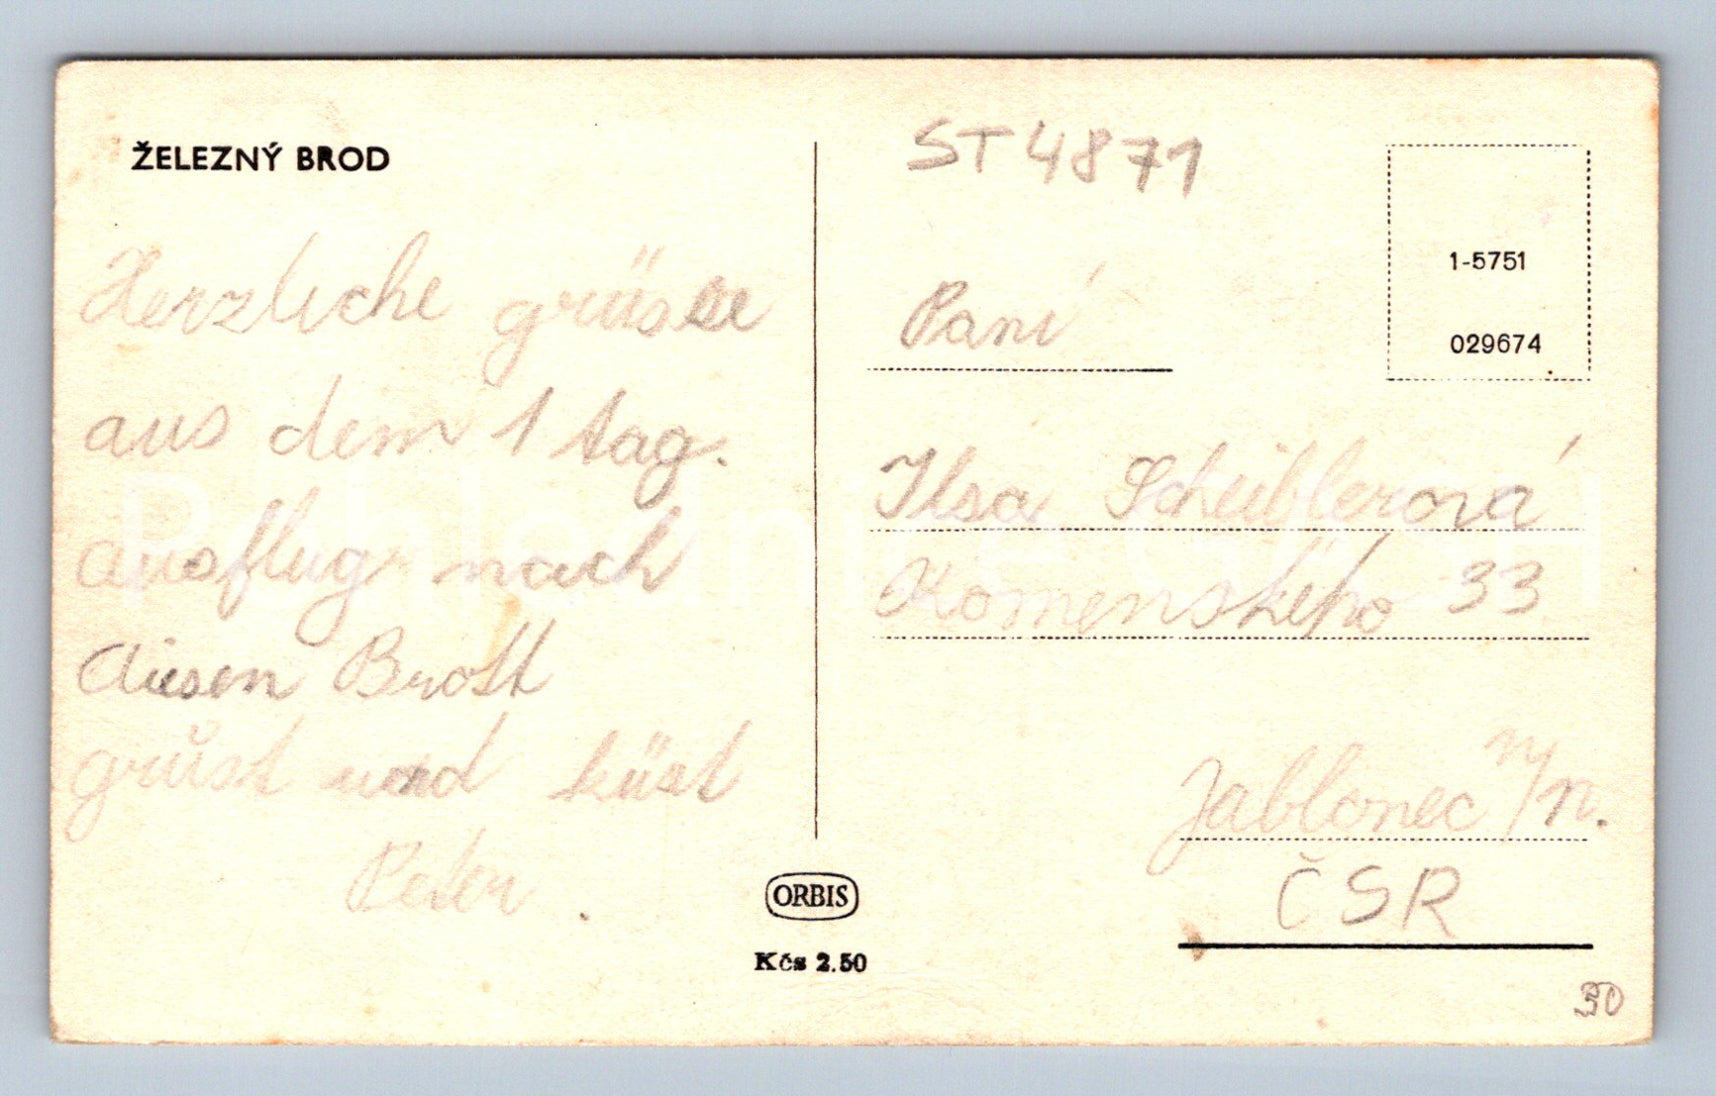 ŽELEZNÝ BROD
Herzliche grüsse
aus dem 1 tag.
ausflug nach
diesen Brott
grüst und küst
Peter
ORBIS
Kčs 2.50
ST 4871
1-5751
029674
Paní
Ilsa Scheiblerová
Komenského 33
Jablonec n/n.
ČSR